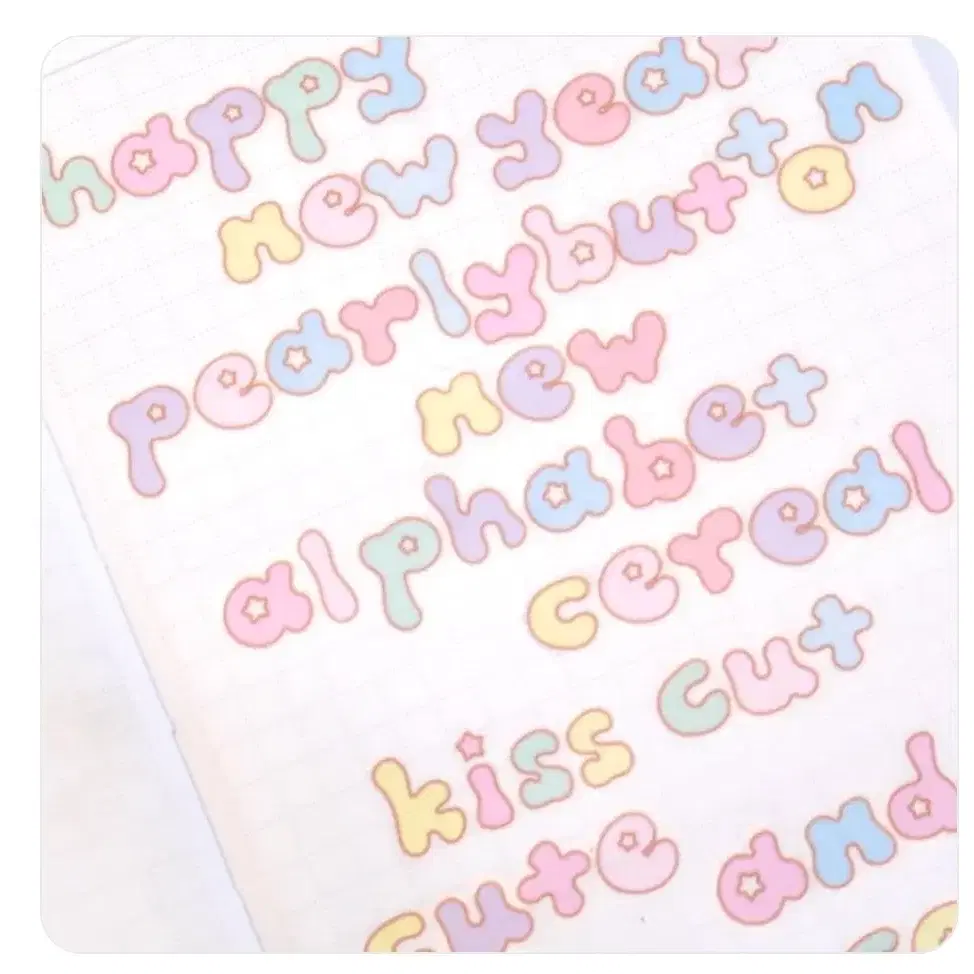 happy
new year
pearlybutton
new
alphabet
cereal
kiss cut
cute
and